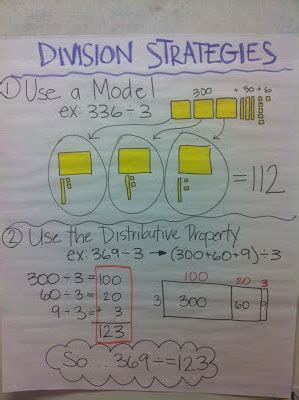 DIVISION STRATEGIES
① Use a Model
ex: 336÷3
300 + 30 + 6
=112
② Use the Distributive Property
ex: 369÷3 → (300+60+9)÷3
300÷3= 100
60÷3= 20
9÷3= + 3
123
100 20 3
3 300 60 9
So....369÷=123